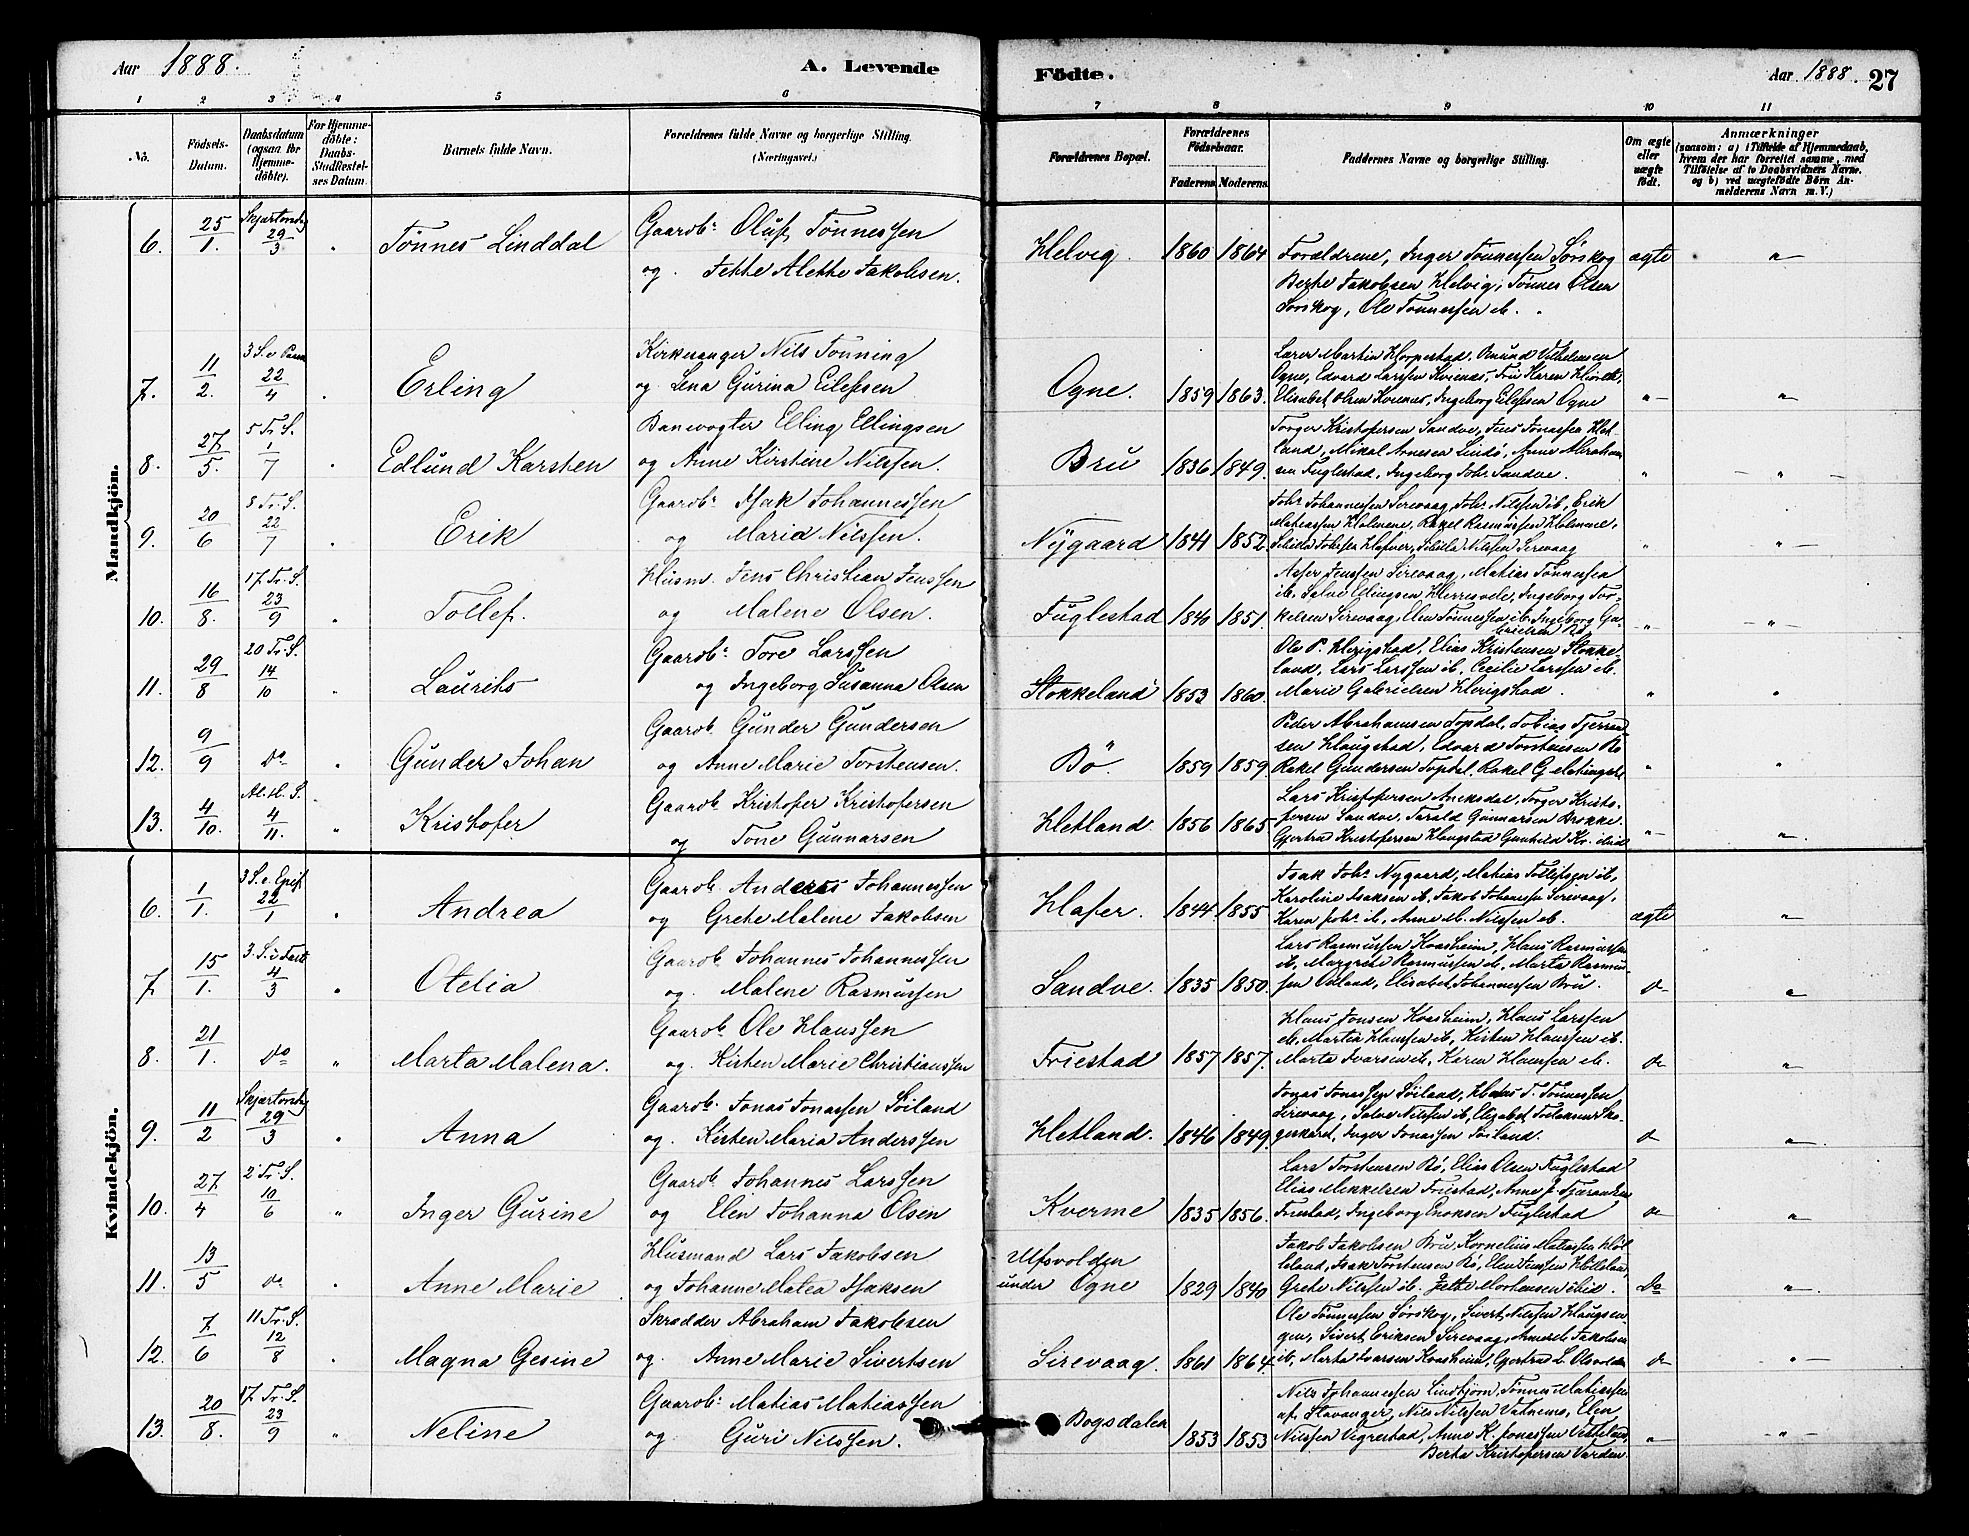 Aar 1888.
A. Levende
Födte.
Aar 1888.
27
1 2 3 4 5 6 7 8 9 10 11
No.
Födsels-
Datum.
Daabsdatum
(ogsaa for
Hjemme-
döbte).
For Hjemme-
döbte:
Daabs-
Stadfæstel-
ses Datum.
Barnets fulde Navn.
Forældrenes fulde Navne og borgerlige Stilling.
(Næringsvei.)
Forældrenes Bopæl.
Forældrenes
Födselsaar.
Faderens
Moderens
Faddernes Navne og borgerlige Stilling.
Om ægte
eller
uægte
födt.
Anmærkninger
(saasom: a) i Tilfælde af Hjemmedaab,
hvem der har forrettet samme, med
Tilföielse af to Daabsvidners Navne.
og b) ved uægtefödte Börn An-
melderens Navn m. V.)
Mandkjön.
6. 25/1. Skjærtorsdag 29/3 " Tønnes Linddal
Gaardb. Oluf Tønnessen
og Jette Alette Jakobsen.
Helvig. 1860 1864
Forældrene, Inger Tønnessen Sørskog
Berte Jakobsen Helvig, Tønnes Olsen
Sørskog, Ole Tønnessen ib.
ægte "
7. 11/2. 3 S. e Paaske 22/4 " Erling
Kirkesanger Nils Tønning
og Lena Gurina Eilefsen
Ogne. 1859 1863.
Lærer Martin Horpestad,
Ogne, Edvard Larssen
Ingeborg Eilefsen Ogne
" "
8. 27/5. 5 Tr. S. 1/7 " Edlund Karsten
Banevogter Elling Ellingsen
og Anne Kirstine Nilssen.
Bru 1836 1849.
Torger Kristofersen Sandve, Jens Jonassen Het-
land, Mikal Arnesen Lindø, Anne Abraham-
sen Fuglestad, Ingeborg Joh. Sandve.
" "
9. 20/6 8 Tr. S. 22/7 " Erik
Gaardb. Isak Johannessen
og Maria Nilssen.
Nygaard 1841 1852
Joh. Johannessen Sirevaag, Joh. Nilssen ib, Erik
Matiassen Holmene, Rakel Rasmussen Holmene,
Nilssen Sirevaag
" "
10. 16/8. 17 Tr. S. 23/9 " Tollef.
Husm. Jens Christian Jenssen
og Malene Olsen.
Fuglestad 1840 1851.
Asser Jenssen Sirevaag, Matias Tønnessen
ib. Salve Ellingsen Herresvele, Ingeborg Tor-
kelsen Sirevaag, Elen Tønnessen ib. Ingeborg Ga-
brielsen Bø
" "
11. 29/8 20 Tr. S. 14/10 " Laurits
Gaardb. Tore Larssen
og Ingeborg Susanna Olsen
Stokkeland 1853 1860.
Ole P. Herigstad, Elias Kristensen Stokke-
land, Lars Larssen ib, Cecilie Larssen ib.
Marie Gabrielsen Herigstad.
" "
12. 9/9 do " Gunder Johan
Gaardb. Gunder Gundersen
og Anne Marie Torstensen.
Bø. 1859 1859
Peder Abrahamsen Topdal, Tobias Fjerran-
sen Haugstad, Edvard Torstensen Bø
Rakel Gundersen Topdal, Rakel G.
" "
13. 4/10. Al. H. S. 4/11. " Kristofer
Gaardb. Kristofer Kristofersen
og Tone Gunnarsen
Hetland. 1856 1865
Lars Kristofersen Aneksdal, Torger Kristo-
fersen Sandve, Tarald Gunnarsen Brokke.
Gjertrud Kristofersen Haugstad Gunhild Kr. ibid
" "
Kvindekjön.
6. 1/1. 3 S. e. Epif. 22/1 " Andrea
Gaardb. Anders Johannessen
og Grete Malene Jakobsen
Hafer. 1844. 1855
Isak Joh. Nygaard, Matias Tollefsen ib,
Karoline Isaksen ib, Jakob Johannessen Sirevaag,
Karen Joh. ib, Anne M. Nilssen ib.
ægte "
7. 15/1. 3. S. i Faste 4/3 " Otelia
Gaardb. Johannes Johannessen
og. Malene Rasmussen
Sandve. 1835 1850.
Lars Rasmussen Kvasheim, Klaus Rasmussen
ib, Margrete Rasmussen ib, Marta Rasmus-
sen Odland, Elisabet Johannessen Bru.
do "
8. 21/1. do " Marta Malena.
Gaardb. Ole Klaussen
og. Kirsten Marie Christianssen
Friestad 1857 1857.
Klaus Jonsen Kvasheim, Klaus Larssen
ib, Martin Klaussen ib, Kirsten Klaussen ib.
Marta Ivarsen ib, Karen Klaussen ib.
do "
9. 11/2 Skjærtorsdag 29/3 " Anna
Gaardb. Jonas Jonassen Søiland
og. Kirsten Maria Anderssen
Hetland. 1846 1849.
Jonas Jonassen Søiland, Klaus T. Tønnessen,
Sirevaag, Salve Nilssen ib, Elisabet
Inger Jonassen Søiland.
do "
10. 27/4 2 Tr. S. 10/6 " Inger Gurine
Gaardb. Johannes Larssen
og Elen Johanna Olsen
Kverme 1835 1856.
Lars Torstensen Bø, Elias Olsen Fuglestad
Elias Mikkelsen Friestad, Anne J. Fjæransen
Friestad, Ingeborg Enoksen Fuglestad
do "
11. 13/5 do " Anne Marie
Husmand Lars Jakobsen
og Johanne Matea Isaksen
Ulfsvolden
under Ogne 1829 1840
Jakob Jakobsen Bru, Kornelius Matiassen Høl-
leland, Isak Torstensen Bø, Elen Jenssen Hølleland,
Grete Nilssen ib. Jette Mortensen ibid.
Do "
12. 7/6 11 Tr. S. 12/8 " Magna Gesine
Skrædder Abraham Jakobsen
og. Anne Marie Sivertsen
Sirevaag. 1861 1864.
Ole Tønnessen Sørskog, Sivert Nilssen Haugsen-
gen, Sivert Eriksen Sirevaag, Jakobsen
ib, Marta Ivarsen Kvasheim, Gjertrud L.
do "
13. 20/8. 17 Tr. S. 23/9 " Neline
Gaardb. Matias Matiassen
og Guri Nilssen.
Bogsdalen 1853 1853
Nils Johannessen Lindbjørn, Tønnes Matiassen
af Stavanger, Nils Nilssen Vatnemo, Elen
Nilssen Vigrestad, Anne K. Jonassen Vetteland,
Berta Kristofersen Varden.
" "